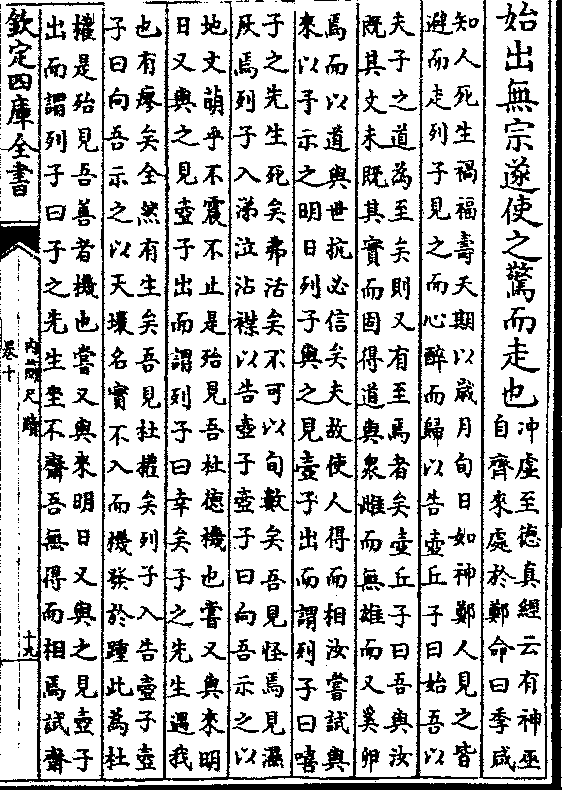 始出無宗遂使之驚而走也
冲虛至德真經云有神巫
自齊來處於鄭命曰季咸
知人死生禍福壽夭期以歲月旬日如神鄭人見之皆
避而走列子見之而心醉而歸以告壺丘子曰始吾以
夫子之道為至矣則又有至焉者矣壺丘子曰吾與汝
既其文未既其實而固得道與衆雌而無雄而又奚卵
焉而以道與世抗必信矣夫故使人得而相汝嘗試與
來以予示之明日列子與之見壺子出而謂列子曰嘻
子之先生死矣弗活矣不可以旬數矣吾見怪焉見濕
灰焉列子入涕泣沾襟以告壺子壺子曰向吾示之以
地文萌乎不震不止是殆見吾杜德機也嘗又與來明
日又與之見壺子出而謂列子曰幸矣子之先生遇我
也有瘳矣全然有生矣吾見杜權矣列子入告壺子壺
子曰向吾示之以天壤名實不入而機發於踵此為杜
權是殆見吾善者機也嘗又與來明日又與之見壺子
出而謂列子曰子之先生坐不齋吾無得而相焉試齋
欽定四庫全書
内簡尺牘
卷十
十九